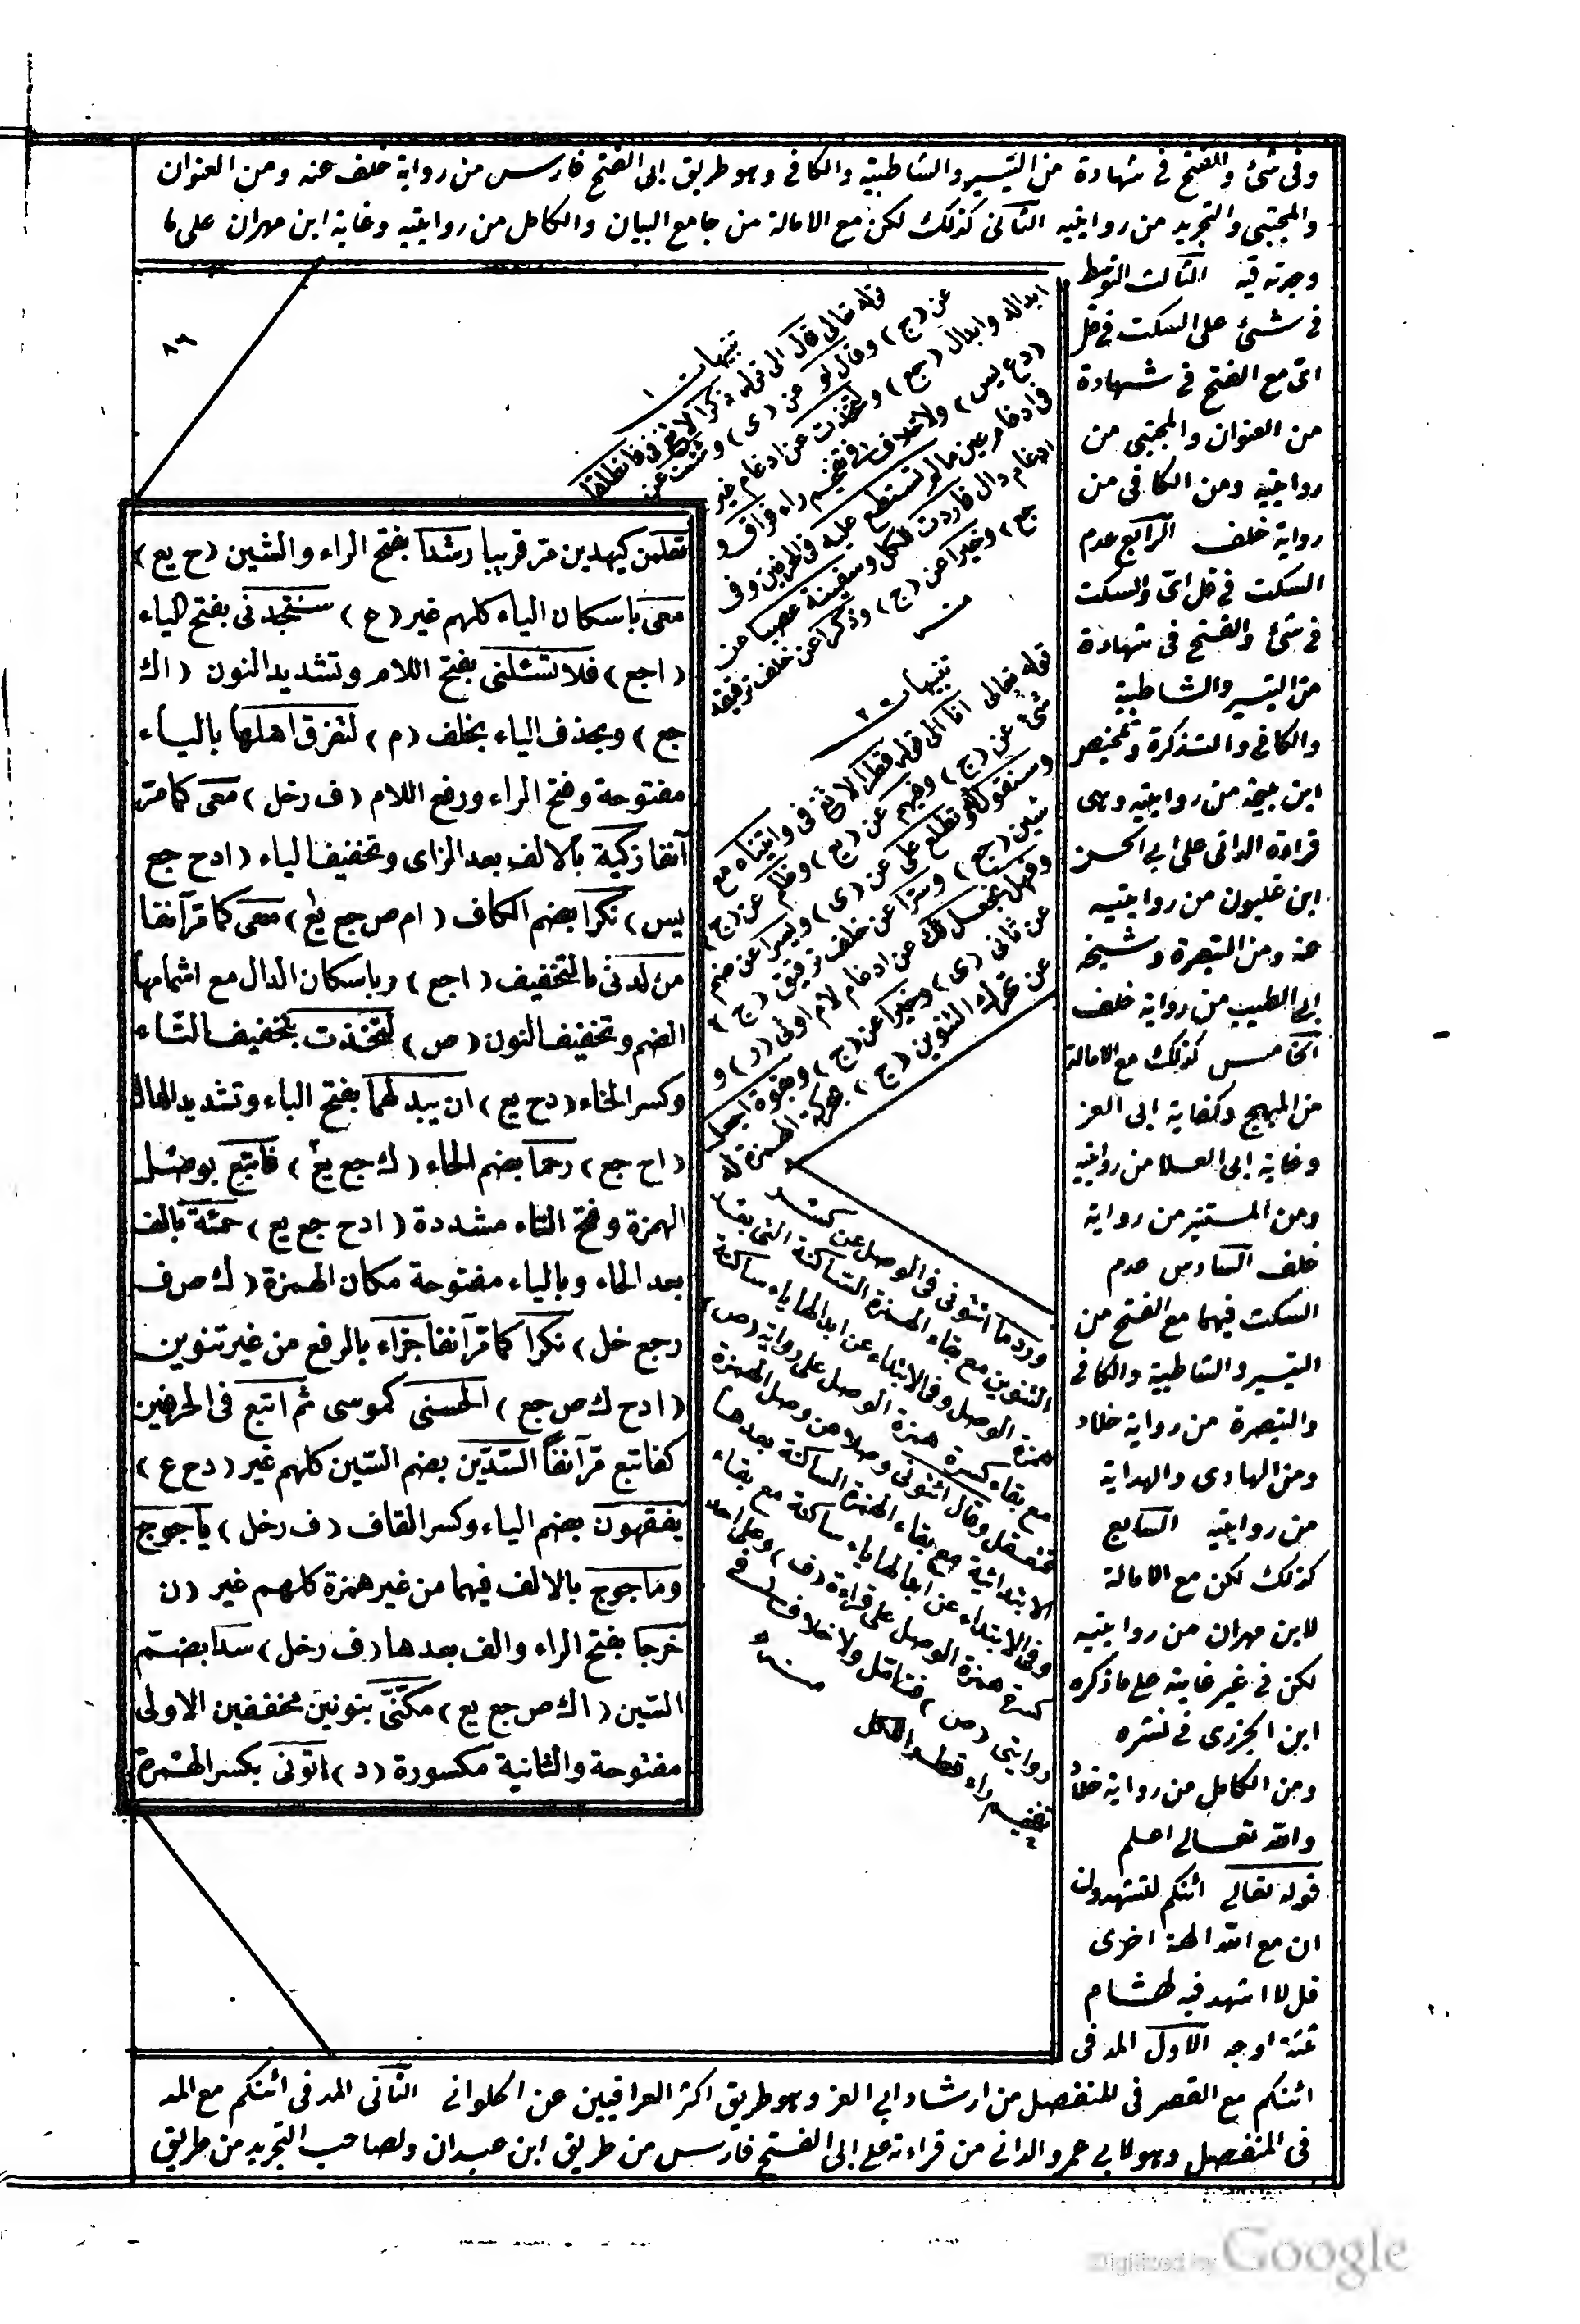 وفى شئ والفتح فى شهادة من التيسير والشاطبية والكافى وهو طريق ابى الفتح فارس من رواية خلف عنه ومن العنوان
والمجتبى والتجريد من روايتيه الثانى كذلك لكن مع الامالة من جامع البيان والكامل من روايتيه وغاية ابن مهران على ما
وجدته فيه الثالث التوسط
فى شئ على السكت فى قل
ائ مع الفتح فى شهادة
من العنوان والمجتبى من
روايتيه ومن الكافى من
رواية خلف الرابع عدم
السكت فى قل ائ والسكت
فى شئ والفتح فى شهادة
من التيسير والشاطبية
والكافى والتذكرة وتلخيص
ابن بليمة من روايتيه وهى
قراءة الدانى على ابى الحسن
ابن غلبون من روايتيه
عنه ومن التبصرة وشيخه
ابى الطيب من رواية خلف
الخامس كذلك مع الامالة
من المبهج وكفاية ابى العز
وغاية ابى العلا من روايتيه
ومن المستنير من رواية
خلف السادس عدم
السكت فيهما مع الفتح من
التيسير والشاطبية والكافى
والتبصرة من رواية خلاد
ومن الهادى والهداية
من روايتيه السابع
كذلك لكن مع الامالة
لابن مهران من روايتيه
لكن فى غير غايته على ما ذكره
ابن الجزرى فى نشره
ومن الكامل من رواية خلاد
والله تعالى اعلم
قوله تعالى ائنكم لتشهدون
ان مع الله الهة اخرى
قل لا اشهد فيه لهشام
ثلثة اوجه الاول المد فى
ائنكم مع القصر فى المنفصل من ارشاد ابى العز وهو طريق اكثر العراقيين عن الحلوانى الثانى المد فى ائنكم مع المد
فى المنفصل وهو لابى عمرو الدانى من قراءته على ابى الفتح فارس من طريق ابن عبدان ولصاحب التجريد من طريق
٨٦
تنبيهات ١
قوله تعالى قال الى قوله ذكرا لا تغ فى فانطلقا
عن (ج) وقال لو عن (ى) وشئت عن
ابداله وابدال (جع) ولتخذت عن ادغام غير
(دع يس) ولا خلاف فى تفخيم راء فراق و
فى ادغام عين ما لم تستطع عليه فى الحرفين وفى
ادغام دال فاردت للكل وسفينة غصبا عن
جع) وخيرا عن (ج) وذكرا عن خلف ترقيقه
منه
تنبيهات ٢
قوله تعالى انا الى قوله قطرا لا تغ فى واتيناه مع
شئ عن (ج) وفيهم عن (يع) وظلم عن (ج)
وسنقول له وتطلع على عن (ى) ويسرا عن ضم
سين (جع) وسترا عن خلف ترقيق (ج)
وفهل نجعل لك عن ادغام لام اولى (ر) و
عن ثانى (ى) وخيرا عن (ج) وبقوة اجعل
وردما ائتونى فى الوصل عن كسر
التنوين مع بقاء الهمزة الساكنة التى بعد
همزة الوصل وفى الابتداء عن ابدالها ياء ساكنة
مع بقاء كسرة همزة الوصل على رواية (ص)
وقال ائتونى وصلا عن وصل الهمزة
الابتدائية مع بقاء الهمزة الساكنة بعدها
وفى الابتداء عن ابدالها ياء ساكنة مع بقاء
كسرة همزة الوصل على قراءة (ف) وعلى احد
روايتى (ص) فتأمل ولا خلاف فى
تفخيم راء قطرا للكل
منه
تعلمن كيهدين مر قريبا رشدا بفتح الراء والشين (ح يع)
معى باسكان الياء كلهم غير (ع) ستجدنى بفتح الياء
(اجع) فلا تسئلنى بفتح اللام وتشديد النون (اك
جع) وبحذف الياء بخلف (م) لتغرق اهلها بالياء
مفتوحة وفتح الراء ورفع اللام (ف رخل) معى كما مر
آنفا زكية بالالف بعد الزاى وتخفيف الياء (ادح جع
يس) نكرا بضم الكاف (ام ص جع يع) معى كما مر آنفا
من لدنى بالتخفيف (اجع) وباسكان الدال مع اشمامها
الضم وتخفيف النون (ص) لتخذت بتخفيف التاء
وكسر الخاء (دح يع) ان يبدلهما بفتح الباء وتشديد الدال
(اح جع) رحما بضم الحاء (ك جع يع) فاتبع بوصل
الهمزة وفتح التاء مشددة (ادح جع يع) حمئة بالف
بعد الحاء وبالياء مفتوحة مكان الهمزة (ك ص ف
رجع خل) نكرا كما مر آنفا جزاء بالرفع من غير تنوين
(ادح ك ص جع) الحسنى كموسى ثم اتبع فى الحرفين
كفاتبع مر آنفا السدين بضم السين كلهم غير (دح ع)
يفقهون بضم الياء وكسر القاف (ف رخل) ياجوج
وماجوج بالالف فيهما من غير همزة كلهم غير (ن
خرجا بفتح الراء والف بعدها (ف رخل) سدا بضم
السين (اك ص جع يع) مكنى بنونين مخففين الاولى
مفتوحة والثانية مكسورة (د) اتونى بكسر الهمزة
Digitized by Google